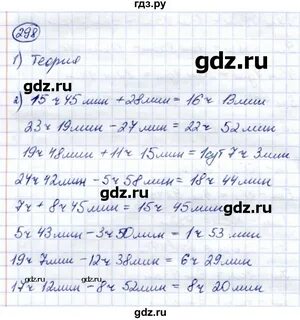 гдз.ру
298
1) Теория
2) 15 ч 45 мин + 28 мин = 16 ч 13 мин
23 ч 19 мин - 27 мин = 22 ч 52 мин
19 ч 48 мин + 11 ч 15 мин = 1 сут 7 ч 3 мин
24 ч 42 мин - 5 ч 58 мин = 18 ч 44 мин
7 ч + 8 ч 45 мин = 15 ч 45 мин
5 ч 43 мин - 3 ч 50 мин = 1 ч 53 мин
19 ч 7 мин - 12 ч 38 мин = 6 ч 29 мин
17 ч 12 мин - 8 ч 52 мин = 8 ч 20 мин
gdz.ru
gdz.ru
gdz.ru
gdz.ru
gdz.ru
gdz.ru